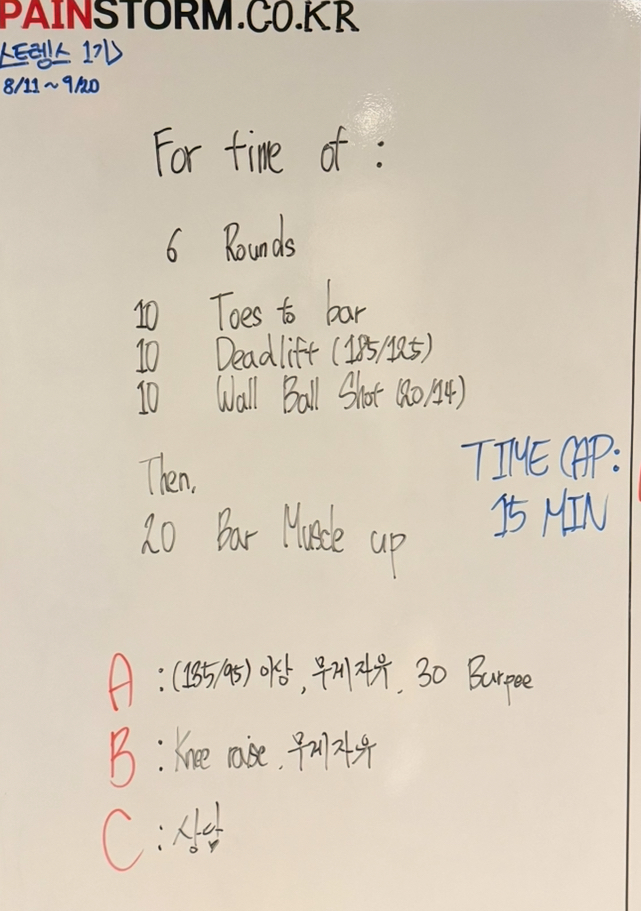 PAINSTORM.CO.KR
스트렝스 1기
8/11 ~ 9/20
For time of :
6 Rounds
10 Toes to bar
10 Deadlift (185/125)
10 Wall Ball Shot (20/14)
Then,
20 Bar Muscle up
TIME CAP:
15 MIN
A : (135/95) 이상, 무게자유, 30 Burpee
B : Knee raise, 무게자유
C : 상담